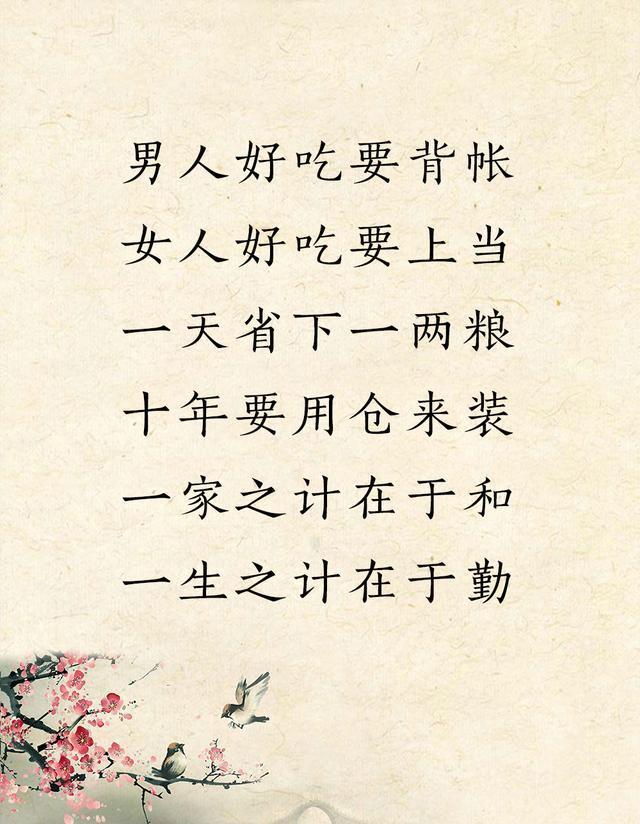 男人好吃要背帐
女人好吃要上当
一天省下一两粮
十年要用仓来装
一家之计在于和
一生之计在于勤